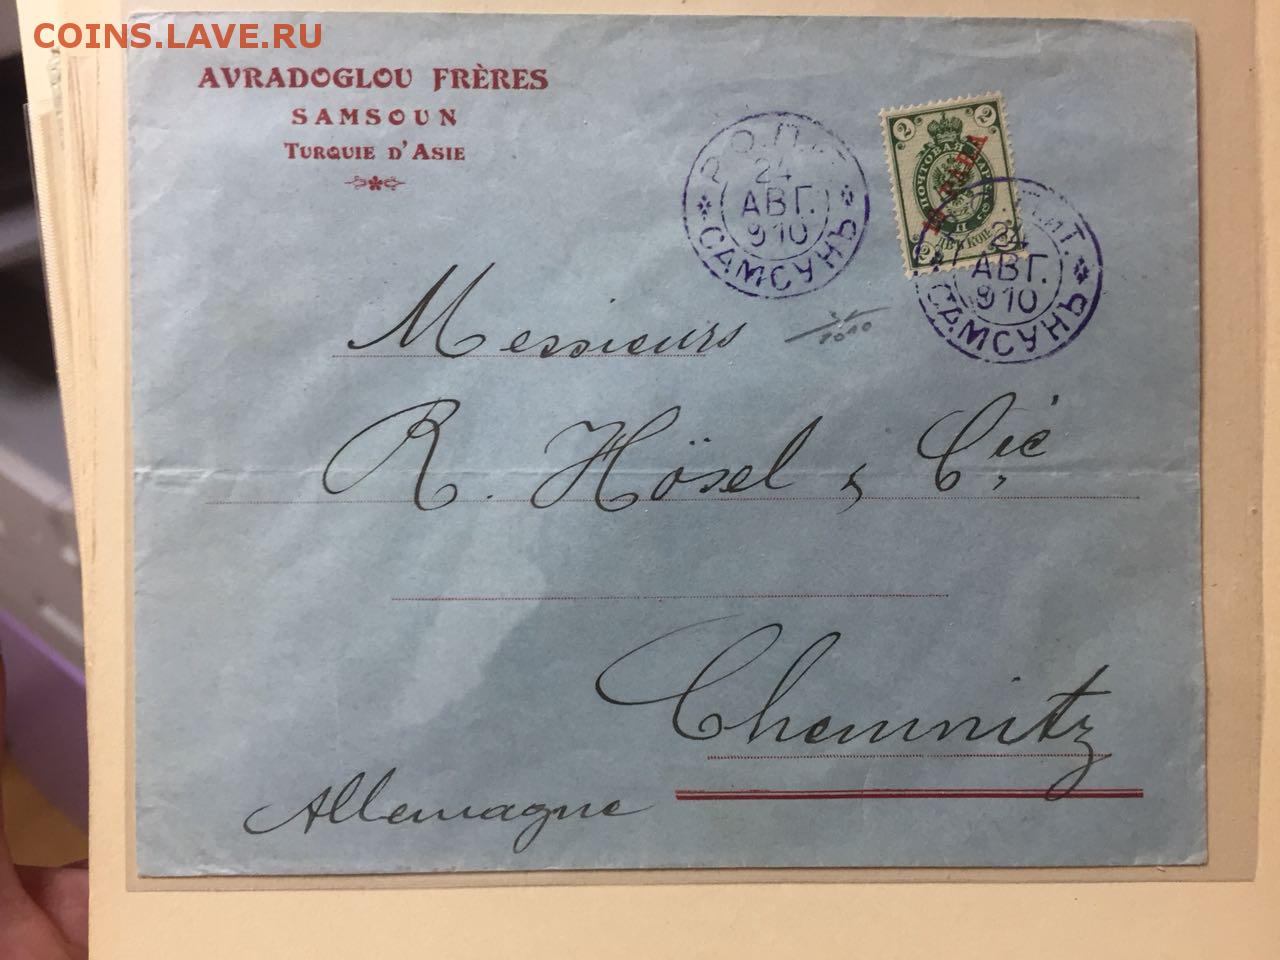 COINS.LAVE.RU
AVRADOGLOU FRÈRES
SAMSOUN
TURQUIE D'ASIE
Р.О.П.и.Т.
24
АВГ.
910
САМСУНЪ
2 2
ПОЧТОВАЯ МАРКА
10 PARA
II
2 ДВѢ КОП.
П.и.Т.
24
АВГ.
910
САМСУНЪ
Messieurs
R. Hösel & Cie
Chemnitz
Allemagne